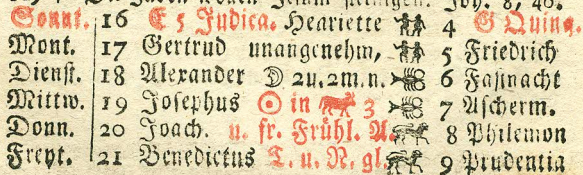 Joh. 8, 46.
Sonnt. 16 E 5 Judica. Henriette 4 G Quinq.
Mont. 17 Gertrud unangenehm, 5 Friedrich
Dienst. 18 Alexander ☽ 2u.2m.n. 6 Fastnacht
Mittw. 19 Josephus ☉ in 3 7 Ascherm.
Donn. 20 Joach. u. fr. Frühl. A. 8 Philemon
Freyt. 21 Benedictus T. u. N. gl. 9 Prudentia